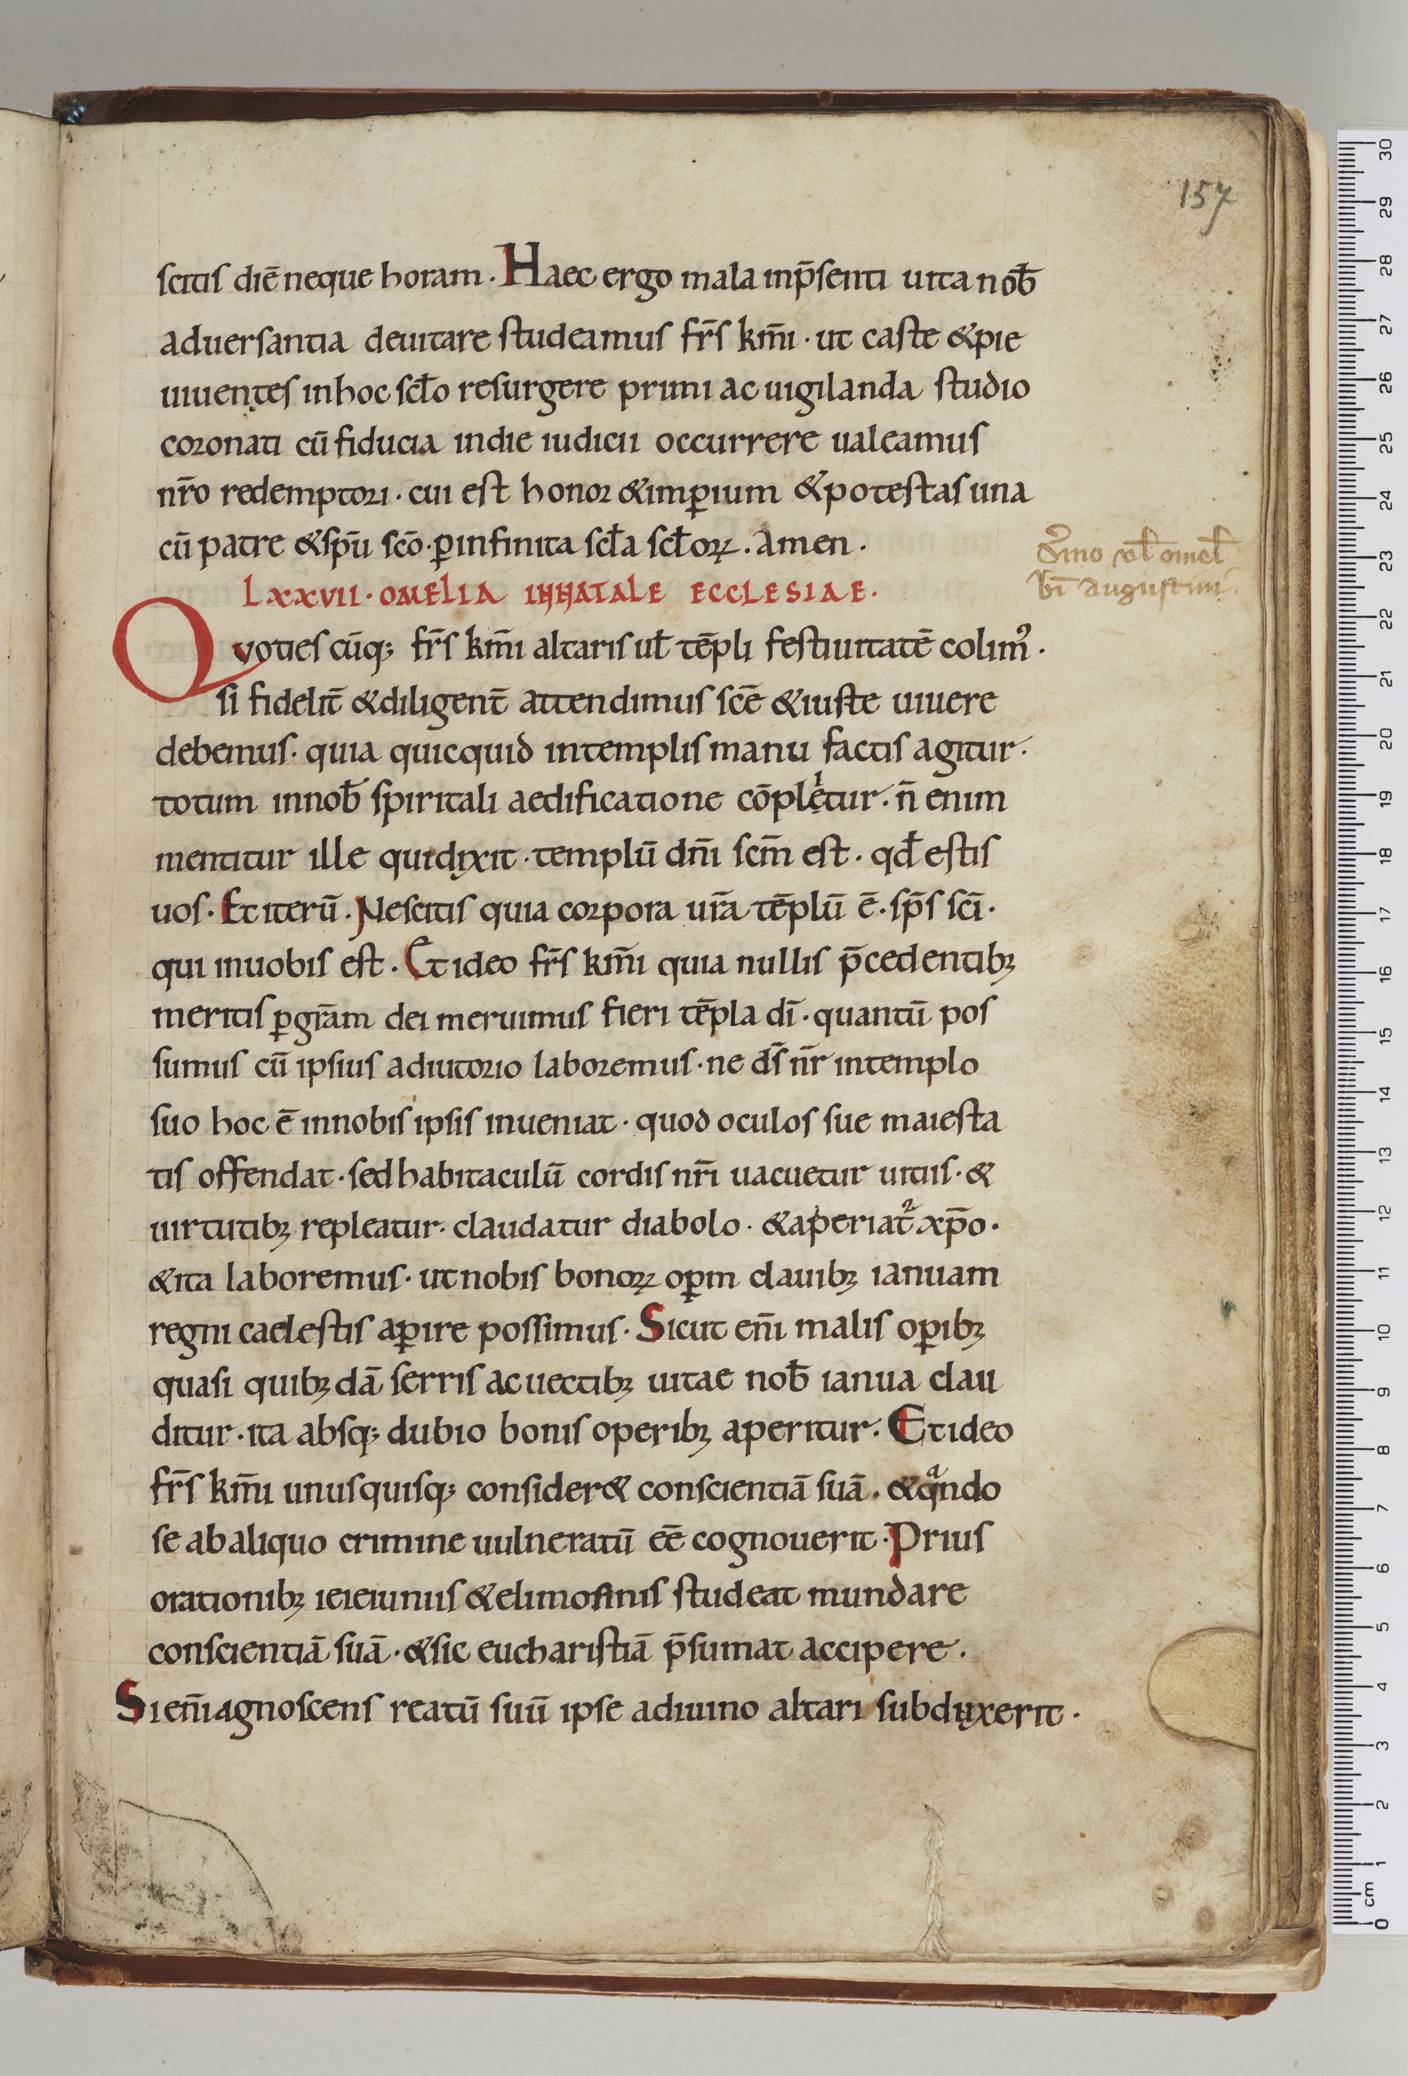 157
scitis diē neque horam. Haec ergo mala inp̄senti uita nob̄
aduersantia deuitare studeamus fr̄s km̄i. ut caste &pie
uiuentes inhoc scl̄o resurgere primi ac uigilanda studio
coronati cū fiducia indie iudicii occurrere ualeamus
nr̄o redemptori. cui est honor &imꝑium &potestas una
cū patre &sp̄u scō. ꝑinfinita scl̄a scl̄oꝝ. Amen.
sermo ul̄ omel̄
bī augustini.
LXXVII. OMELIA INNATALE ECCLESIAE.
Quotiescūq; fr̄s km̄i altaris ul̄ tēpli festiuitatē colim᾿.
si fidelit̄ &diligent̄ attendimus scē &iuste uiuere
debemus. quia quicquid intemplis manu factis agitur.
totum innob̄ spiritali aedificatione cōplẹ'tur. n̄ enim
mentitur ille quidixit. templū dn̄i scm̄ est. qd̄ estis
uos. Et iterū. Nescitis quia corpora ur̄a tēplū ē. sp̄s scī.
qui inuobis est. Et ideo fr̄s km̄i quia nullis p̄cedentibꝫ
meritis ꝑgr̄am dei meruimus fieri tēpla dī. quantū pos
sumus cū ipsius adiutorio laboremus. ne ds̄ nr̄ intemplo
suo hoc ē innobis ipsis inueniat. quod oculos sue maiesta
tis offendat. sed habitaculū cordis nr̄i uacuetur uitiis. &
uirtutibꝫ repleatur. claudatur diabolo. &aperiat᾿ xp̄o.
&ita laboremus. ut nobis bonoꝝ oꝑm clauibꝫ ianuam
regni caelestis aꝑire possimus. Sicut em̄ malis oꝑibꝫ
quasi quibꝫdā serris ac uectibꝫ uitae nob̄ ianua clau
ditur. ita absq; dubio bonis operibꝫ aperitur. Et ideo
fr̄s km̄i unusquisq; consider& conscientiā suā. &qᵃndo
se abaliquo crimine uulneratū eē cognouerit. Prius
orationibꝫ ieieiuniis &elimosinis studeat mundare
conscientiā suā. &sic eucharistiā p̄sumat accipere.
Si en̄i agnoscens reatū suū ipse adiuino altari subduxerit.